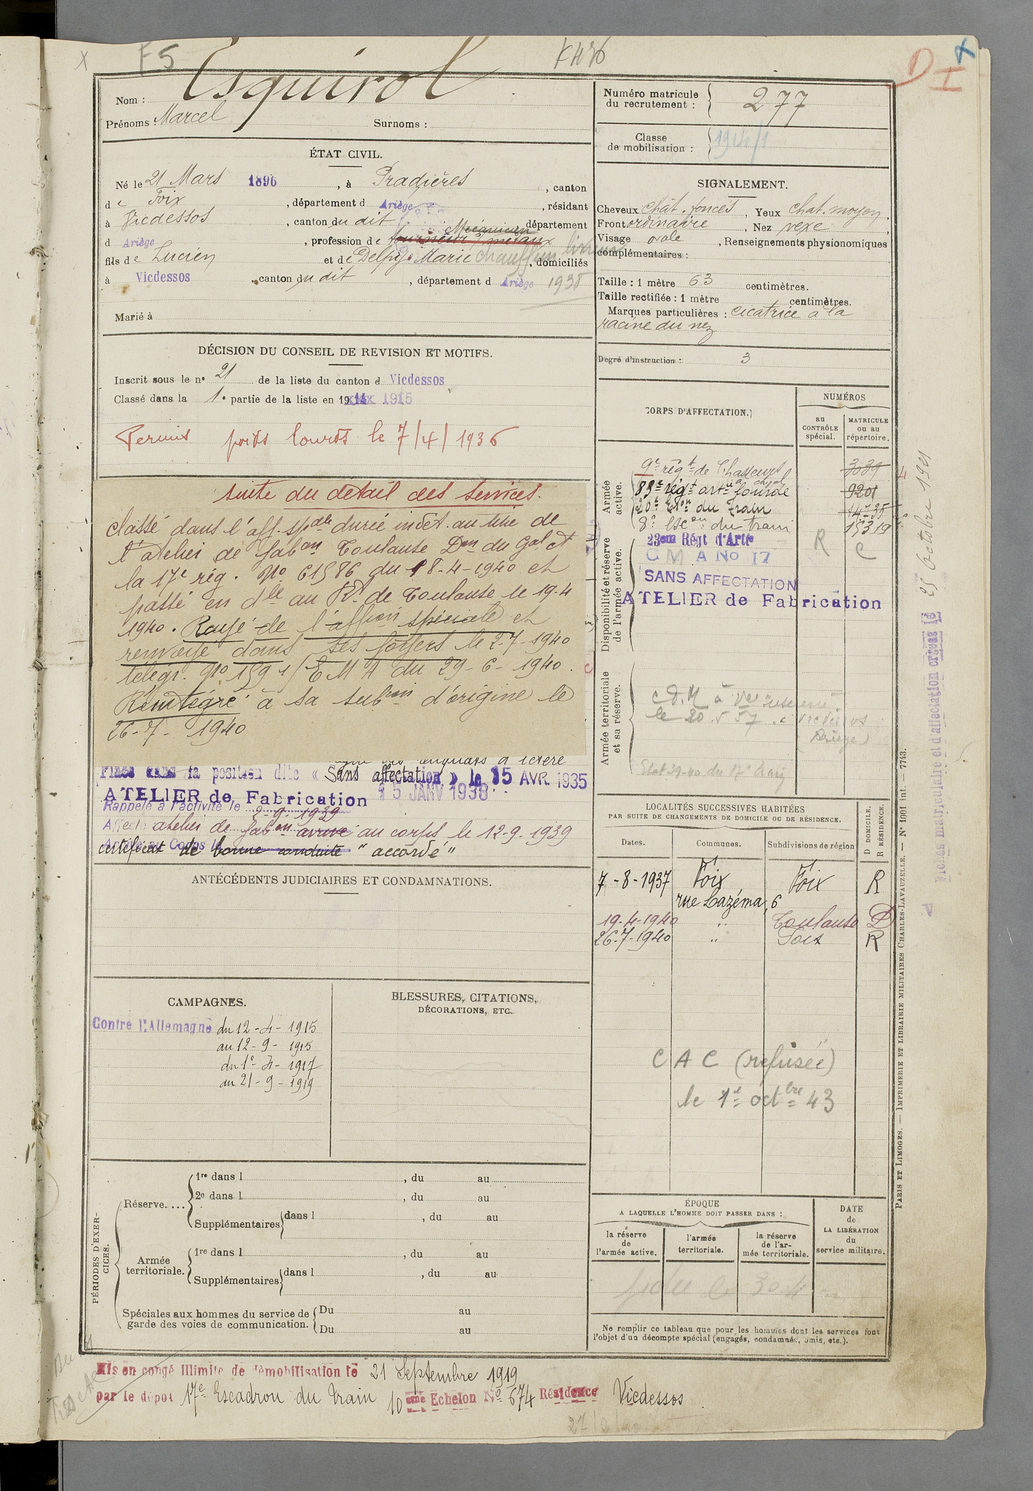 F5
Nom : Esquirol
Prénoms : Marcel Surnoms :
ÉTAT CIVIL.
Né le 21 Mars 1896, à Pradières, canton
de Foix, département d Ariège, résidant
à Vicdessos, canton du dit, département
d Ariège, profession de Mécanicien
fils de Lucien et de Delpy Marie, domiciliés
à Vicdessos, canton du dit, département d Ariège 1938
Marié à
DÉCISION DU CONSEIL DE REVISION ET MOTIFS.
Inscrit sous le n° 21 de la liste du canton d Vicdessos
Classé dans la 1e partie de la liste en 1915
Permis poids lourds le 7/4/1936
suite du détail des services.
classé dans l'aff. spéale durée indét. au titre de
l'atelier de fabon Toulouse Don du Gal ct
la 17e rég. No 61586 du 18-4-1940 et
passé en dle au Rt de Toulouse le 19-4
1940. Rayé de l'affion spéciale et
renvoyé dans ses foyers le 2-7-1940
télégr. No 1591/EMA du 29-6-1940.
Réintégré à sa subon d'origine le
26-7-1940
Placé dans la position dite « Sans affectation » le 15 AVR. 1935
ATELIER de Fabrication 15 JANV 1938
Rappelé à l'activité le 2-9-1939
Affecté atelier de fabon arrivé au corps le 12-9-1939
certificat de bonne conduite "accordé"
ANTÉCÉDENTS JUDICIAIRES ET CONDAMNATIONS.
CAMPAGNES.
Contre l'Allemagne du 12-4-1915
au 12-9-1915
du 1er-4-1917
au 21-9-1919
BLESSURES, CITATIONS,
DÉCORATIONS, ETC.
PÉRIODES D'EXERCICES.
Réserve....
1re dans l , du au
2e dans l , du au
Supplémentaires dans l , du au
Armée territoriale.
1re dans l , du au
Supplémentaires dans l , du au
Spéciales aux hommes du service de
garde des voies de communication.
Du au
Du au
Numéro matricule
du recrutement : 277
Classe
de mobilisation : 1914/1
SIGNALEMENT.
Cheveux chât. foncés, Yeux chat. moyen,
Front ordinaire, Nez vexe,
Visage ovale, Renseignements physionomiques
complémentaires :
Taille : 1 mètre 63 centimètres.
Taille rectifiée : 1 mètre centimètres.
Marques particulières : cicatrice à la
racine du nez
Degré d'instruction : 3
CORPS D'AFFECTATION.
NUMÉROS
AU CONTRÔLE spécial.
MATRICULE ou au répertoire.
Armée active.
9e régt de Chasseurs 3039
83e régt artie lourde 9201
20e Eson du Train 14735
8e Escon du train 15319
Disponibilité et réserve de l'armée active.
23eme Régt d'Artie
C M A No 17 R C
SANS AFFECTATION
ATELIER de Fabrication
Armée territoriale et sa réserve.
LOCALITÉS SUCCESSIVES HABITÉES
PAR SUITE DE CHANGEMENTS DE DOMICILE OU DE RÉSIDENCE.
Dates. Communes. Subdivisions de région D DOMICILE. R RÉSIDENCE.
7-8-1937 Foix Foix R
rue Lazéma, 6
19-4-1940 " Toulouse D
26-7-1940 " Foix R
C A C (refusée)
le 1er octbre 43
ÉPOQUE
A LAQUELLE L'HOMME DOIT PASSER DANS :
la réserve de l'armée active.
l'armée territoriale.
la réserve de l'armée territoriale.
DATE de LA LIBÉRATION du service militaire.
Ne remplir ce tableau que pour les hommes dont les services font
l'objet d'un décompte spécial (engagés, condamnés, omis, etc.).
Mis en congé illimité de démobilisation le 21 Septembre 1919
par le dépôt 17e Escadron du Train 10eme Echelon No 674 Résidence Vicdessos
PARIS ET LIMOGES. — IMPRIMERIE ET LIBRAIRIE MILITAIRES CHARLES-LAVAUZELLE. — N° 1001 int. — 7743.
Fiches matriculaire et d'affectation créées le 25 octobre 1921